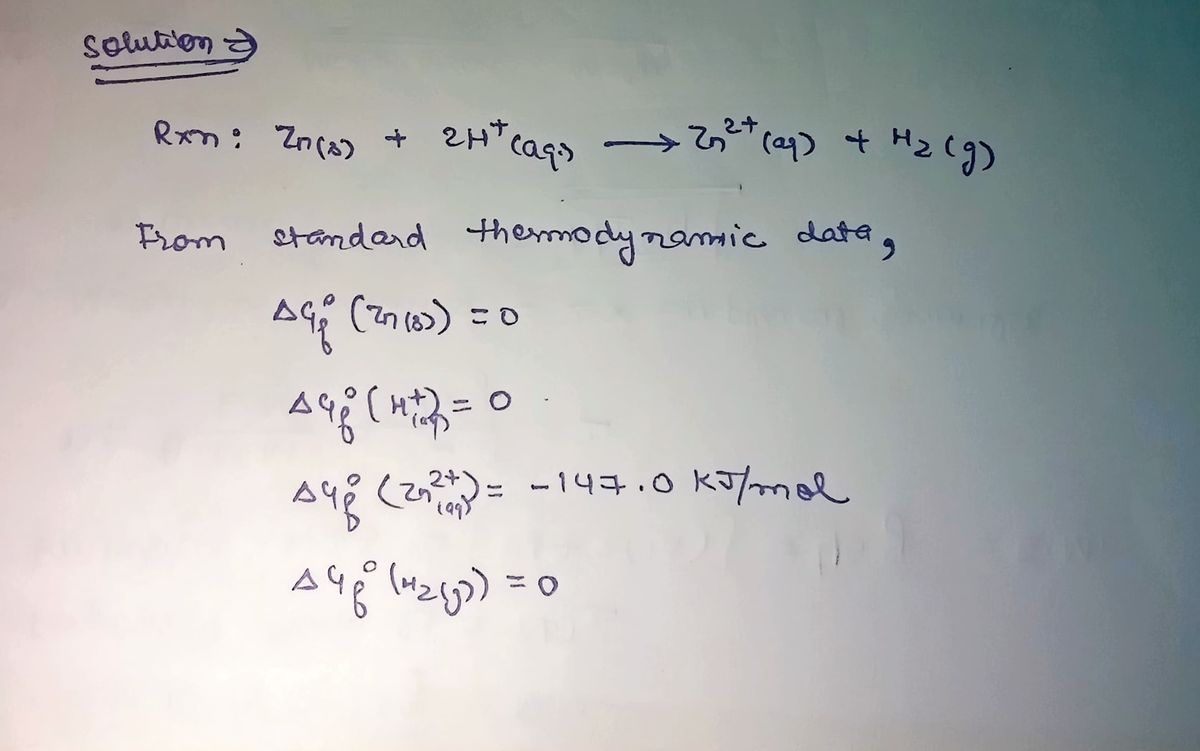 Solution ⇒
Rxn: Zn(s) + 2H⁺(aq.) ⟶ Zn²⁺(aq) + H₂(g)
From standard thermodynamic data,
ΔG°f (Zn(s)) = 0
ΔG°f (H⁺(aq)) = 0
ΔG°f (Zn²⁺(aq)) = -147.0 KJ/mol
ΔG°f (H₂(g)) = 0